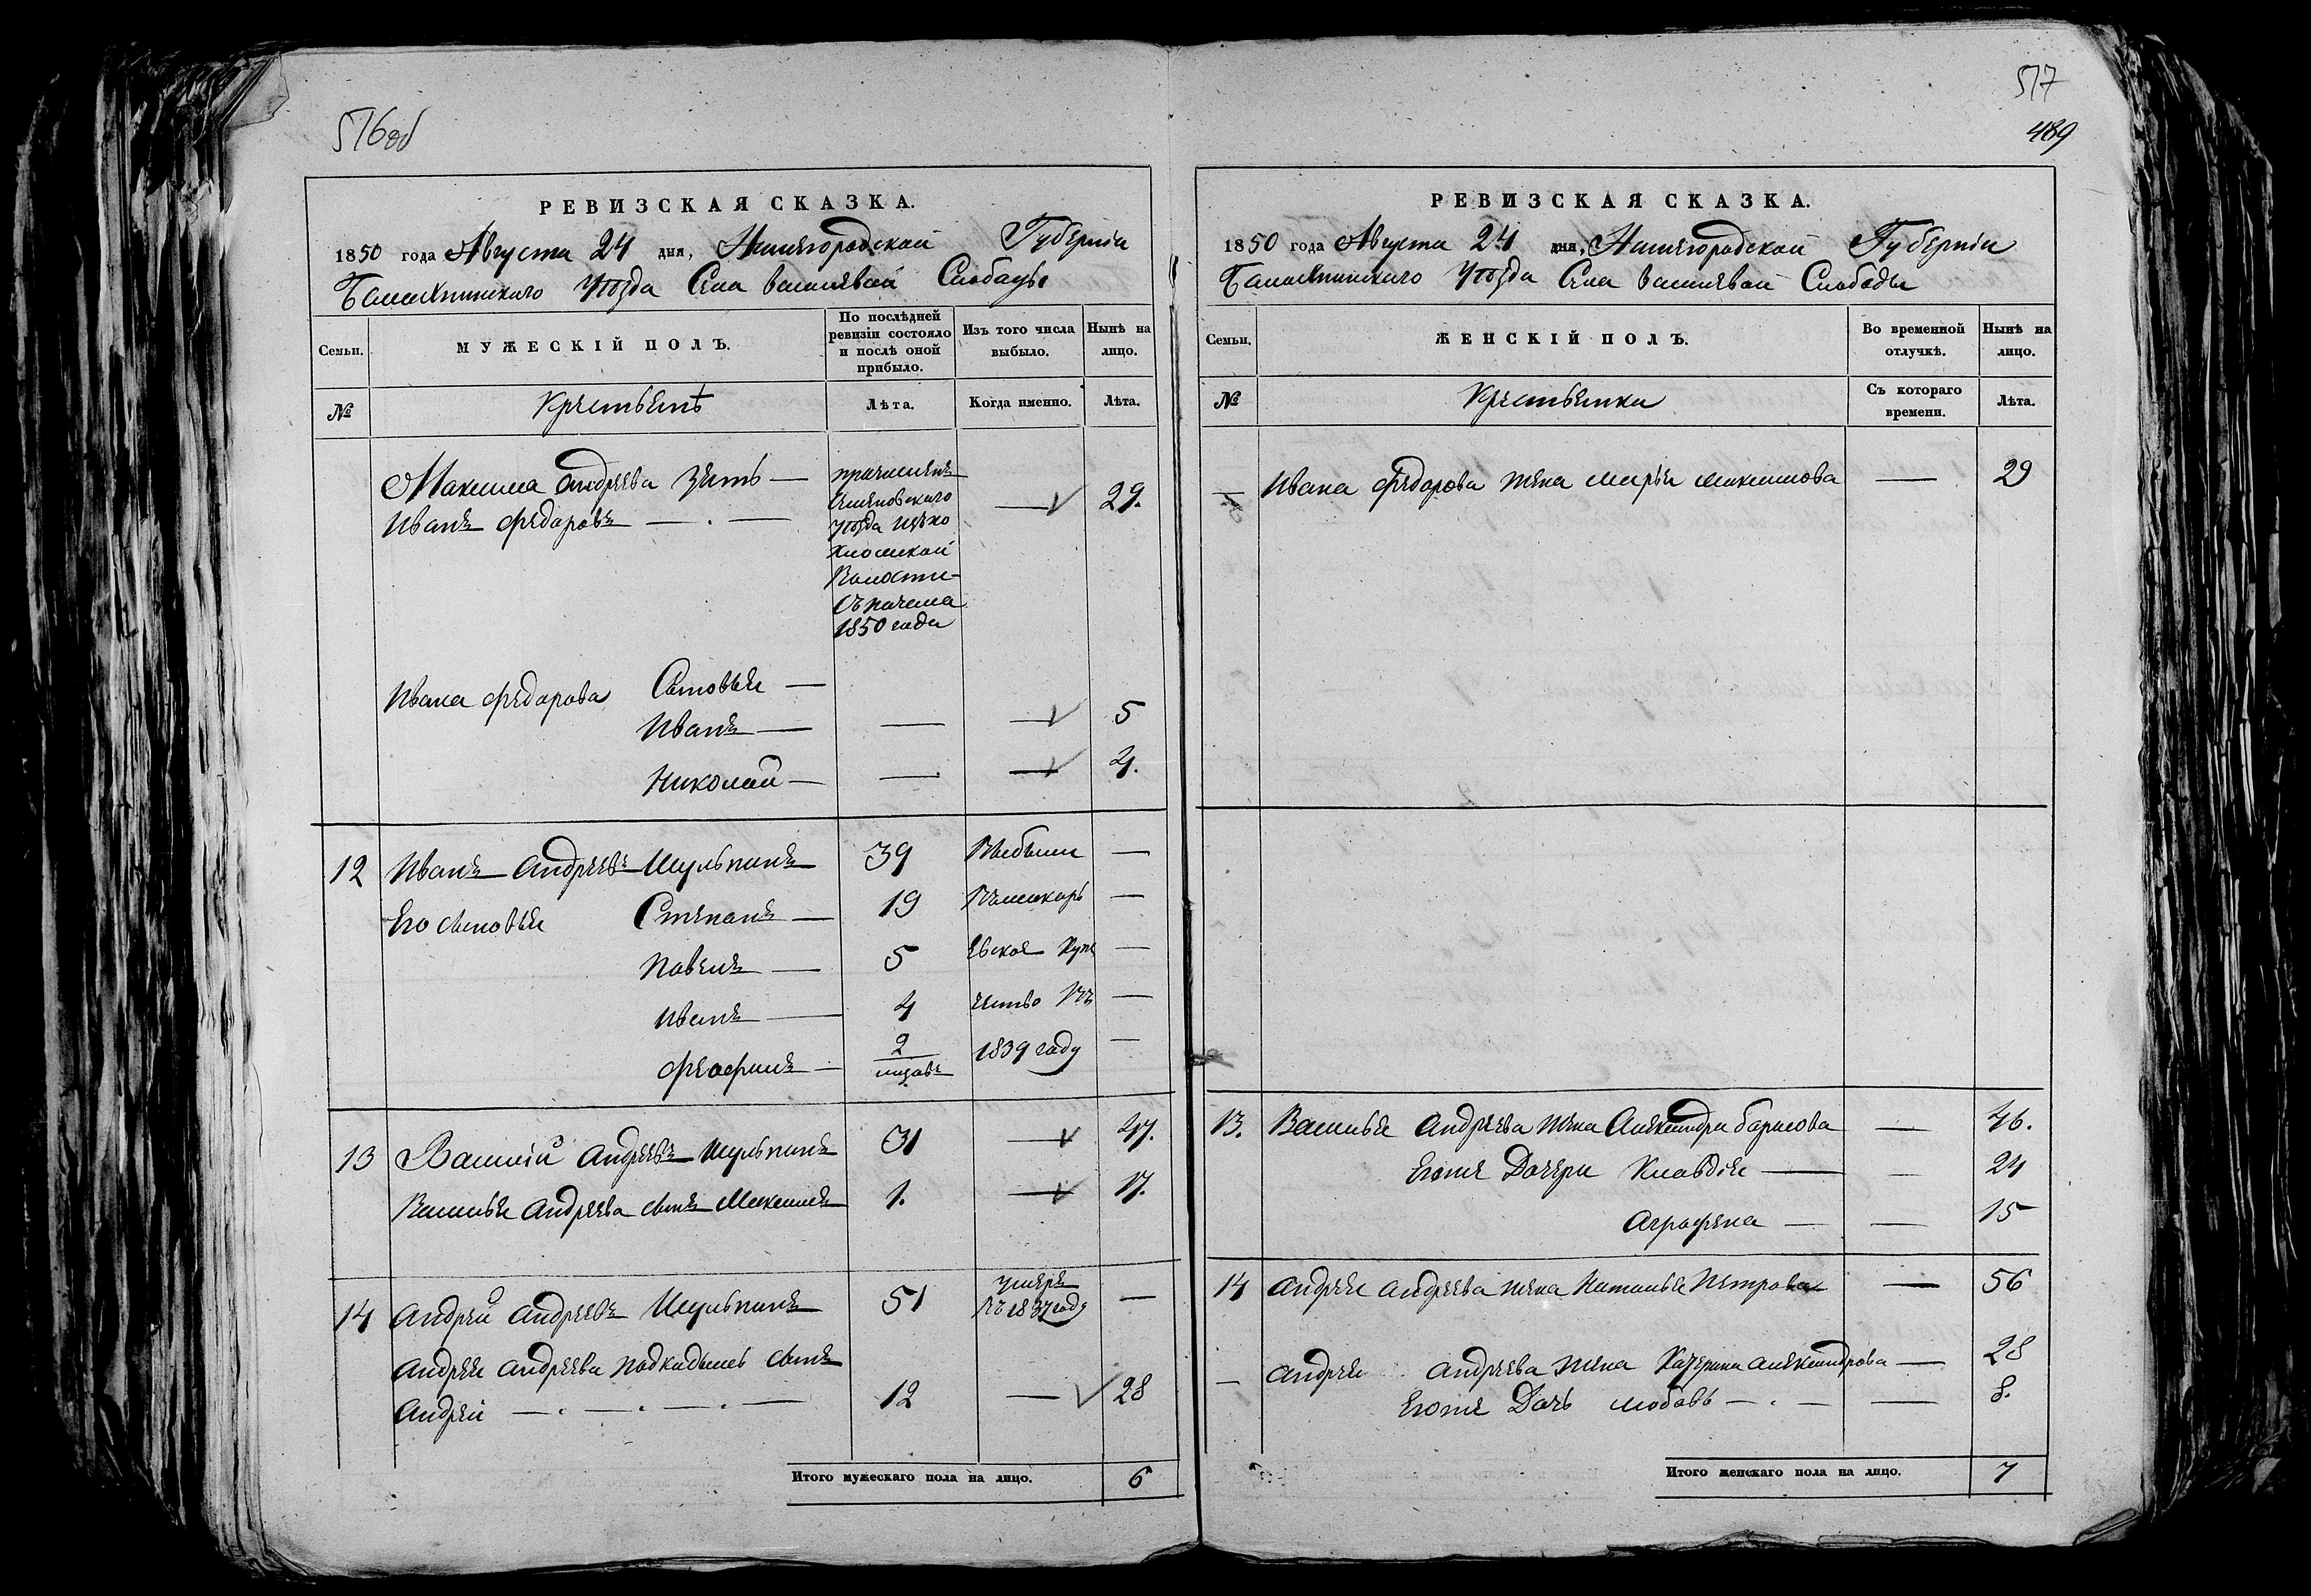 516об
РЕВИЗСКАЯ СКАЗКА.
1850 года Августа 24 дня, Нижегородской Губернiи
Балахнинскаго Уѣзда Села Василевой Слободы
Семьи.
МУЖЕСКIЙ ПОЛЪ.
По послѣдней ревизiи состояло и послѣ оной прибыло.
Изъ того числа выбыло.
Нынѣ на лицо.
№
Крестьянъ
Лѣта.
Когда именно.
Лѣта.
Максима Андреева зять —
Иванъ Федоровъ — . —
причисленъ
Семеновскаго
уѣзда
Волости
съ начала
1850 года
— 29.
Ивана Федорова Сыновья —
Иванъ — — — 5
Николай — — — 2.
12 Иванъ Андреевъ Шульпинъ 39 Выбыли —
Его сыновья Степанъ — 19 Въ Макарь —
Павелъ — 5 евское Купе —
Иванъ — 4 чество Въ —
Феофилъ — 2 1839 году —
13 Василiй Андреевъ Шульпинъ 31 — 47.
Василья Андреева сынъ Максимъ 1. — 17.
14 Андрей Андреевъ Шульпинъ 51 умеръ въ 1837 году —
Андрея Андреева подкидышъ сынъ
Андрей — . — . — . — 12 — 28
Итого мужескаго пола на лицо. 6
517
489
РЕВИЗСКАЯ СКАЗКА.
1850 года Августа 24 дня, Нижегородской Губернiи
Балахнинскаго Уѣзда Села Василевой Слободы
Семьи.
ЖЕНСКIЙ ПОЛЪ.
Во временной отлучкѣ.
Нынѣ на лицо.
№
Крестьянки
Съ котораго времени.
Лѣта.
— Ивана Федорова жена Марья Максимова — 29
13. Василья Андреева жена Александра Борисова — 46.
Егоже Дочери Клавдiя — — 24
Аграфена — — 15
14 Андрея Андреева жена Наталья Петрова — 56
— Андрея Андреева жена Катерина Александрова — 28
Егоже Дочь Любовь — . — — 8.
Итого женскаго пола на лицо. 7